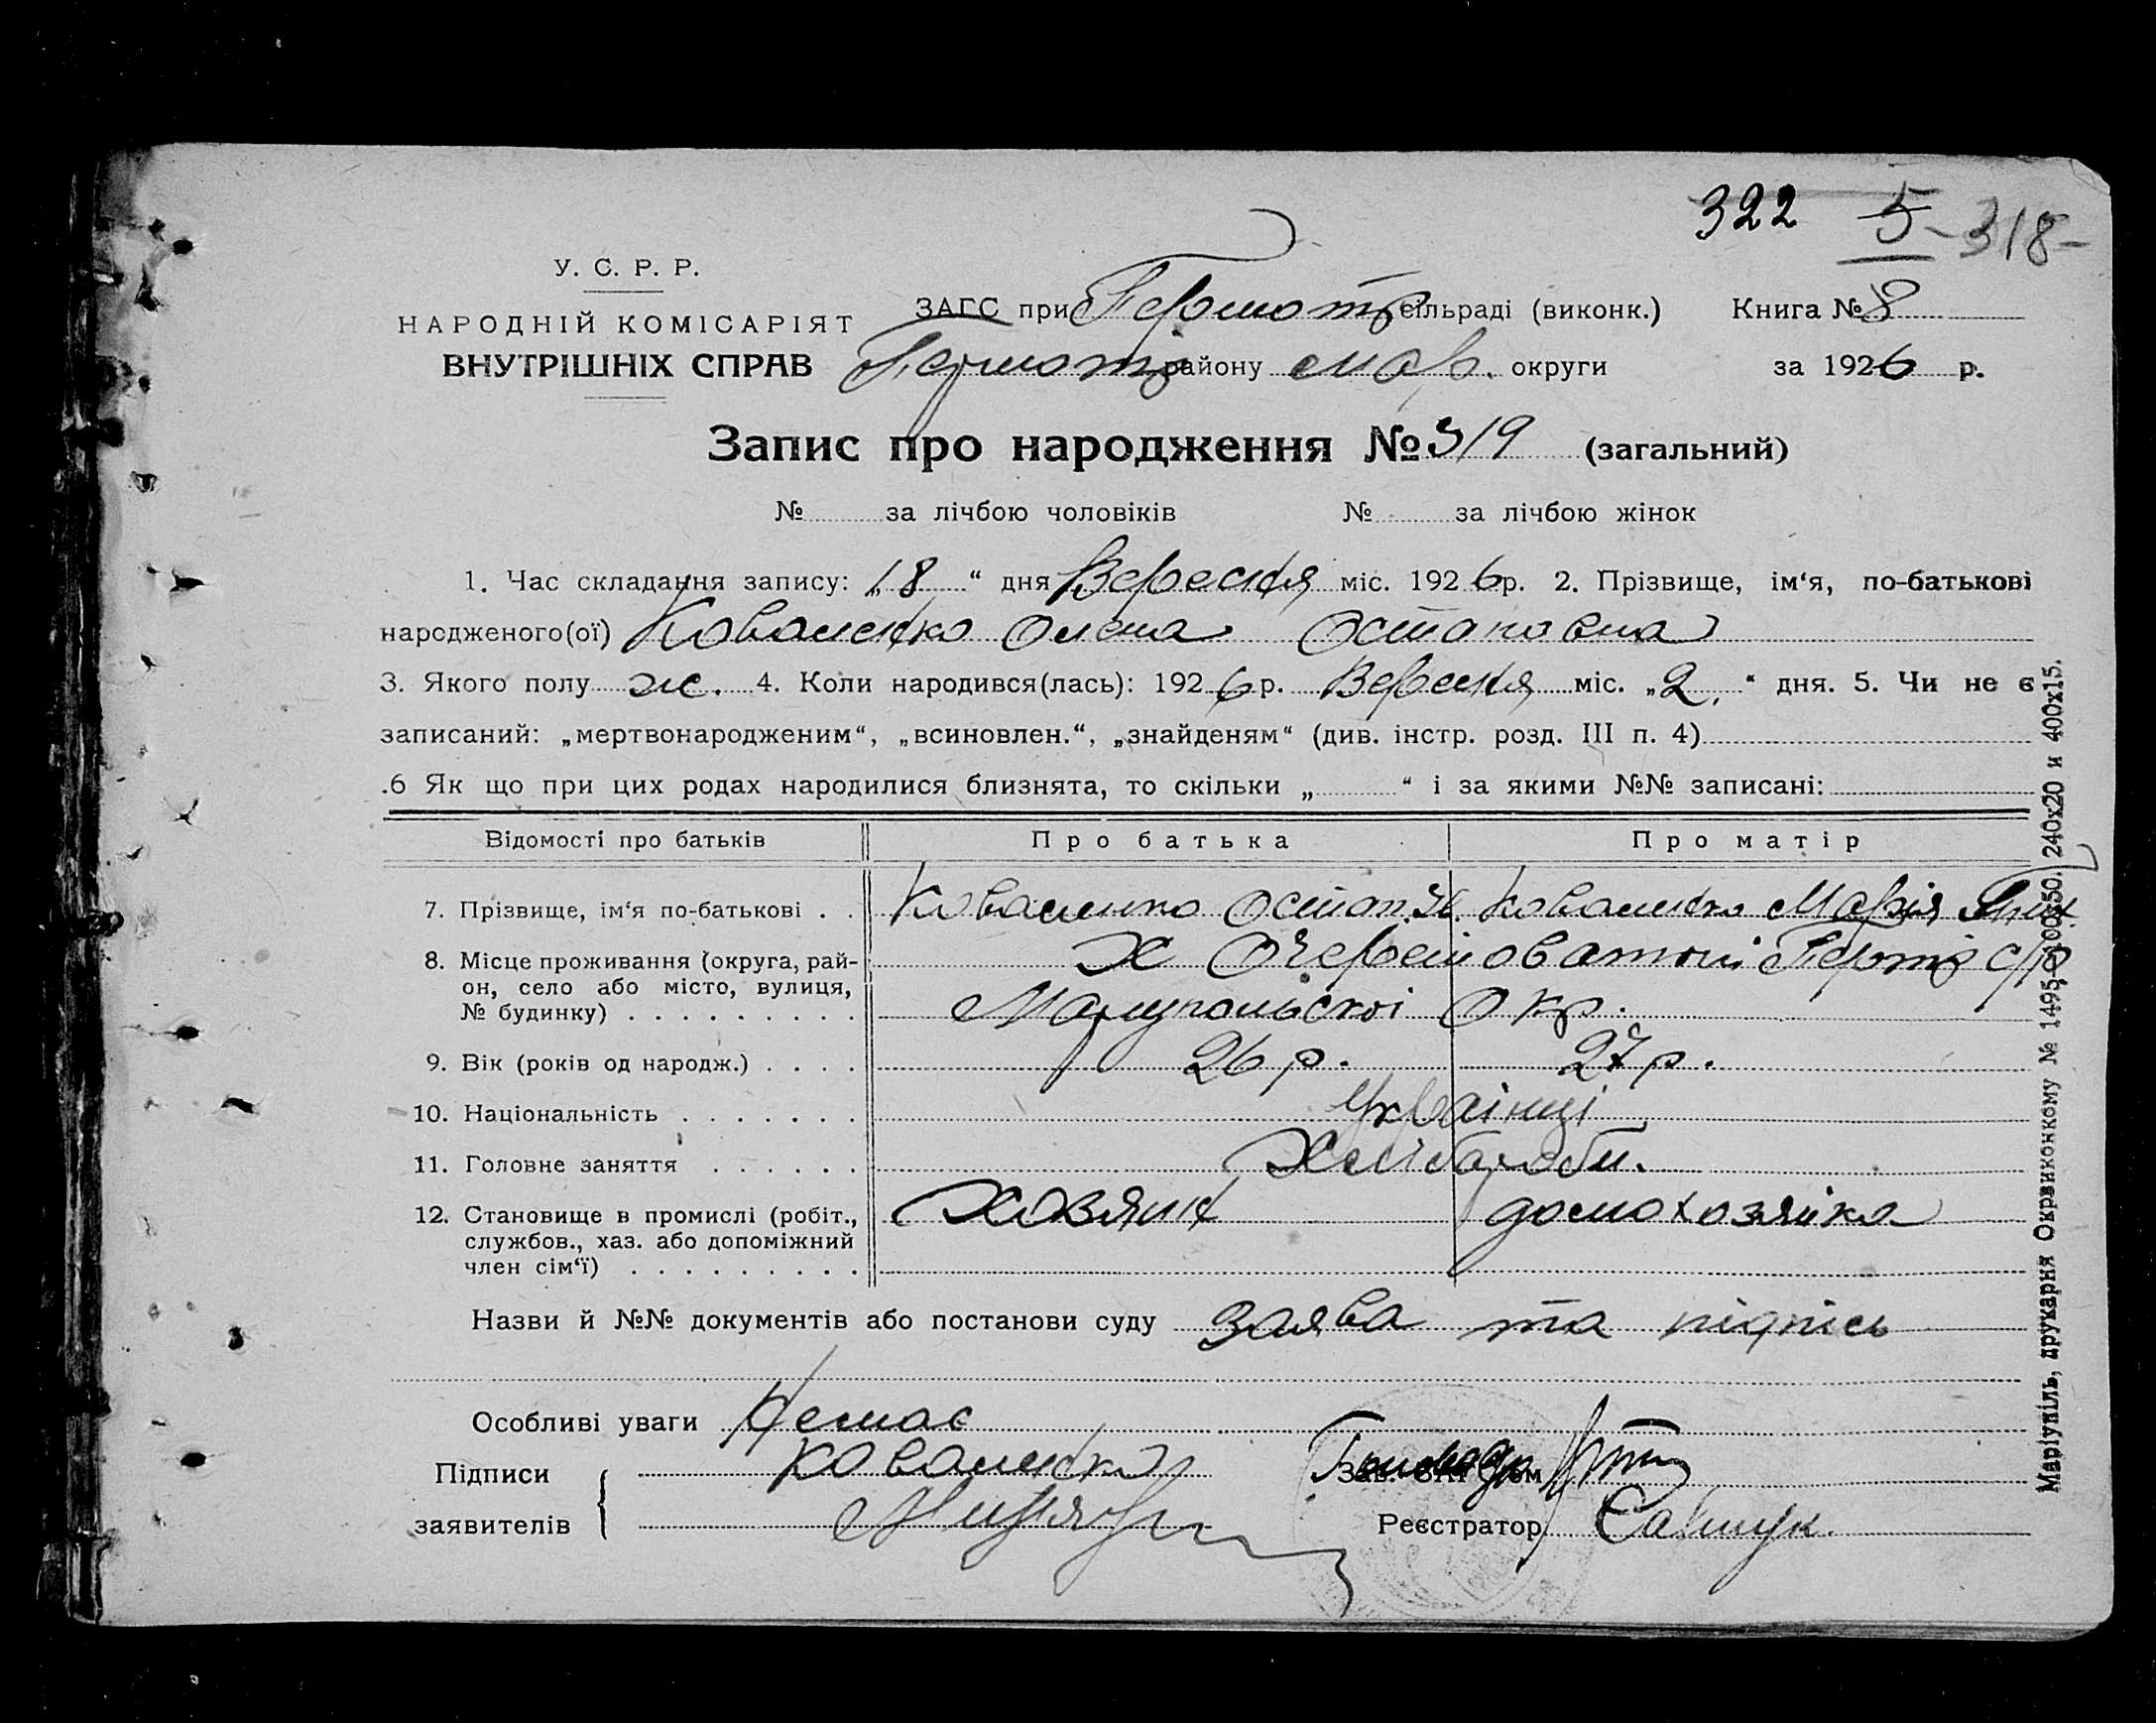 322 5 - 318 -
У. С. Р. Р.
НАРОДНІЙ КОМІСАРІЯТ
ВНУТРІШНІХ СПРАВ
ЗАГС при сільраді (виконк.) Книга № 8
району Мар. округи за 1926 р.
Запис про народження № 319 (загальний)
№ за лічбою чоловіків № за лічбою жінок
1. Час складання запису: „18“ дня Вересня міс. 1926 р. 2. Прізвище, ім‘я, по-батькові
народженого(ої) Коваленко Олена Остаповна
3. Якого полу ж. 4. Коли народився(лась): 1926 р. Вересня міс. „2“ дня. 5. Чи не є
записаний: „мертвонародженим“, „всиновлен.“, „знайденям“ (див. інстр. розд. III п. 4)
.6 Як що при цих родах народилися близнята, то скільки „ “ і за якими №№ записані:
Відомості про батьків Про батька Про матір
7. Прізвище, ім‘я по-батькові . . Коваленко Остап Коваленко Марія
8. Місце проживання (округа, рай-
он, село або місто, вулиця,
№ будинку) . . . . . . . . .
Х с/р
Маріупольскоі окр.
9. Вік (років од народж.) . . . . 26 р. 27 р.
10. Національність . . . . . . . Українці
11. Головне заняття . . . . . . Хлібороби.
12. Становище в промислі (робіт.,
службов., хаз. або допоміжний
член сім‘ї) . . . . . . . . .
Хозяин домохозяйка
Назви й №№ документів або постанови суду Заява та підпісь
Особливі уваги Немає
Підписи
заявителів
Коваленко
Реєстратор
Маріупіль, друкарня Окрвиконкому № 1495-500x50. 240x20 и 400x15.